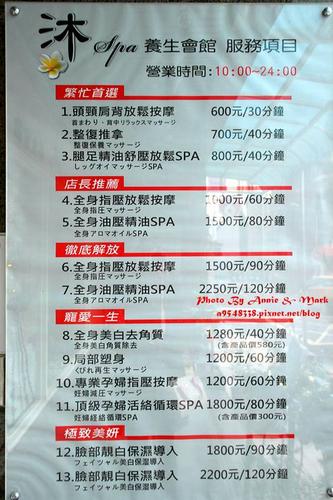 沐 Spa 養生會館 服務項目
營業時間:10:00~24:00
繁忙首選
1.頭頸肩背放鬆按摩 600元/30分鐘
首まわり・背中リラックスマッサージ
2.整復推拿 700元/40分鐘
整復保養マッサージ
3.腿足精油舒壓放鬆SPA 800元/40分鐘
レッグオイマッサージSPA
店長推薦
4.全身指壓放鬆按摩 1000元/60分鐘
全身指圧マッサージ
5.全身油壓精油SPA 1500元/80分鐘
全身アロマオイルSPA
徹底解放
6.全身指壓放鬆按摩 1500元/90分鐘
全身指圧マッサージ
7.全身油壓精油SPA 2250元/120分鐘
全身アロマオイルSPA
Photo By Annie & Mark
a9548338.pixnet.net/blog
寵愛一生
8.全身美白去角質 1280元/40分鐘
全身美白角質除去 (含產品價580元)
9.局部塑身 1200元/60分鐘
くびれ再生マッサージ
10.專業孕婦指壓按摩 1200元/60分鐘
妊婦減圧マッサージ
11.頂級孕婦活絡循環SPA 1800元/80分鐘
妊婦経絡循環SPA (含產品價300元)
極致美妍
12.臉部靚白保濕導入 1800元/90分鐘
フェイシャル美白保湿導入
13.臉部靚白保濕導入 2200元/120分鐘
フェイシャル美白保湿導入